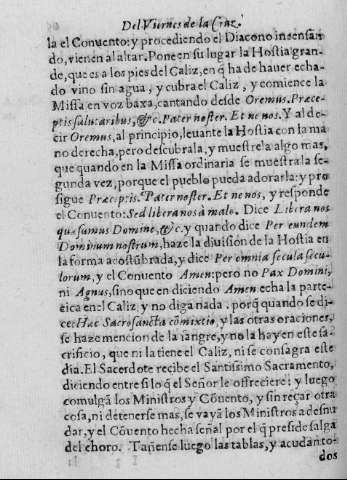 Del Viernes de la Cruz.
la el Conuento: y procediendo el Diacono insensan
do, vienen al altar. Pone en su lugar la Hostia gran-
de, que es a los pies del Caliz, en q̃ ha de hauer echa-
do vino sin agua, y cubra el Caliz, y comience la
Missa en voz baxa, cantando desde Oremus. Præce-
ptis salutaribus, &c. Pater noster. Et ne nos. Y al de-
cir Oremus, al principio, leuante la Hostia con la ma
no derecha, pero descubrala, y muestrela algo mas,
que quando en la Missa ordinaria se muestra la se-
gunda vez, porque el pueblo pueda adorarla: y pro
sigue Præceptis. Pater noster. Et ne nos, y responde
el Conuento: Sed libera nos à malo. Dice Libera nos
quæsumus Domine, &c. y quando dice Per eundem
Dominum nostrum, haze la diuisión de la Hostia en
la forma acostũbrada, y dice Per omnia secula secu-
lorum, y el Conuento Amen: pero no Pax Domini,
ni Agnus, sino que en diciendo Amen echa la parte-
cica en el Caliz y no diga nada. porq̃ quando se di-
ce: Hæc Sacrosancta cõmixtio, y las otras oraciones,
se haze mencion de la sangre, y no la hay en este sa-
crificio, que ni la tiene el Caliz, ni se consagra este
dia. El Sacerdote recibe el Santissimo Sacramento,
diciendo entre si lo q̃ el Señor le ofreciere: y luego
comulgã los Ministros y Cõuento, y sin reçar otra
cosa, ni detenerse mas, se vayã los Ministros a desnu
dar, y el Cõuento hecha señal por el q̃ preside salga
del choro. Tañense luego las tablas, y acudan to-
dos